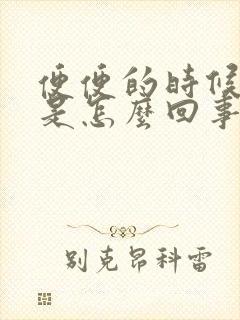 便便的時候
是怎麼回事
别克昂科雷